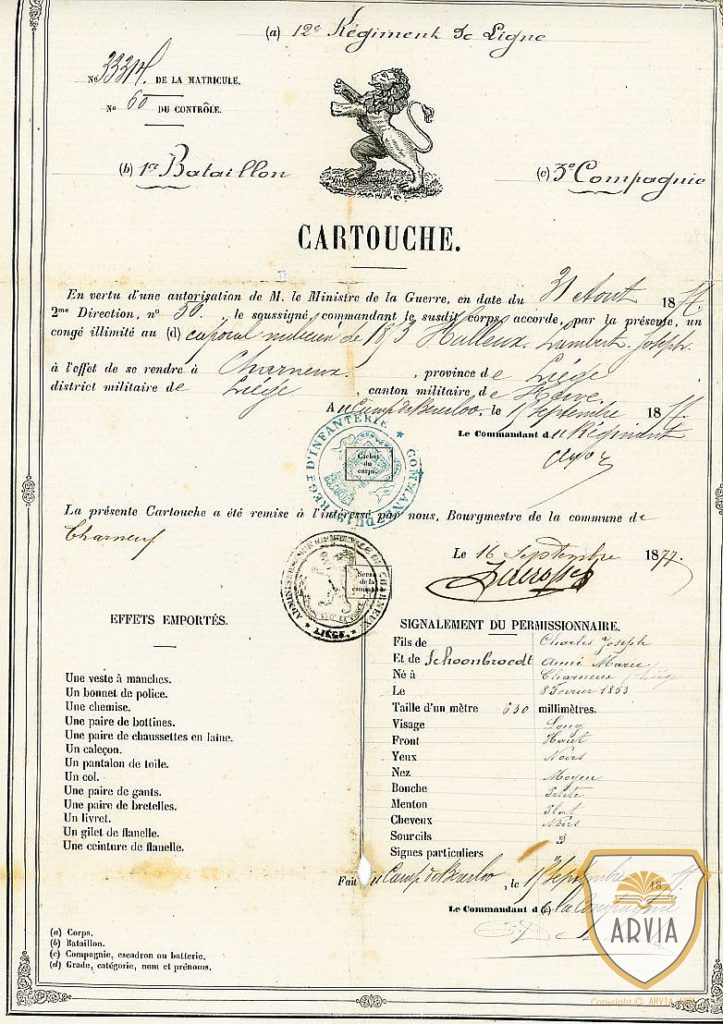 (a) 12e Régiment de Ligne
No 33214 DE LA MATRICULE.
No 60 DU CONTRÔLE.
(b) 1er Bataillon
(c) 3e Compagnie
CARTOUCHE.
En vertu d'une autorisation de M. le Ministre de la Guerre, en date du 31 Aout 1877
2me Direction, n° 50 , le soussigné, commandant le susdit corps accorde, par la présente, un
congé illimité au (d) caporal milicien de 1873 Halleux, Lambert Joseph
à l'effet de se rendre à Charneux , province de Liége
district militaire de Liége , canton militaire de Herve.
Au Camp de Beverloo, le 15 Septembre 1877.
Le Commandant du Régiment
COMMANDANT DU 12e RÉG. D'INFANTERIE
Cachet du corps.
La présente Cartouche a été remise à l'intéressé par nous, Bourgmestre de la commune de
Charneux
Le 16 Septembre 1877.
ADMINISTRATION COMMUNALE DE CHARNEUX
LIÉGE
Sceau de la commune
EFFETS EMPORTÉS.
Une veste à manches.
Un bonnet de police.
Une chemise.
Une paire de bottines.
Une paire de chaussettes en laine.
Un caleçon.
Un pantalon de toile.
Un col.
Une paire de gants.
Une paire de bretelles.
Un livret.
Un gilet de flanelle.
Une ceinture de flanelle.
SIGNALEMENT DU PERMISSIONNAIRE.
Fils de Charles Joseph
Et de Schoonbroodt Anne Marie
Né à Charneux Liége
Le 8 Fevrier 1853
Taille d'un mètre 630 millimètres.
Visage Long
Front Haut
Yeux Noirs
Nez Moyen
Bouche Petite
Menton Plat
Cheveux Noirs
Sourcils
Signes particuliers
Fait au Camp de Beverloo , le 15 Septembre 1877.
Le Commandant de la Compagnie
(a) Corps.
(b) Bataillon.
(c) Compagnie, escadron ou batterie.
(d) Grade, catégorie, nom et prénoms.
ARVIA
Copyright © ARVIA